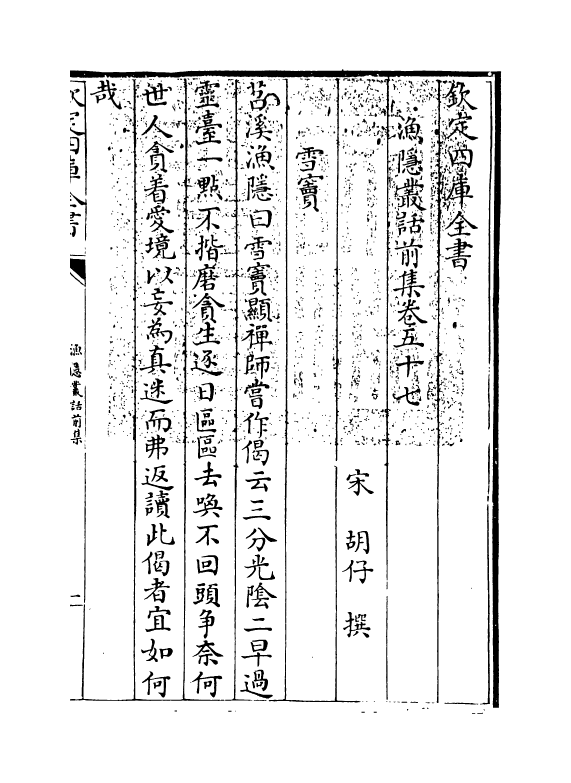 欽定四庫全書
漁隱叢話前集卷五十七
宋 胡仔 撰
雪竇
苕溪漁隱曰雪竇顯禪師嘗作偈云三分光隂二早過
靈臺一點不揩磨貪生逐日區區去喚不回頭争奈何
世人貪着愛境以妄為真迷而弗返讀此偈者宜如何
哉
欽定四庫全書
漁隱叢話前集